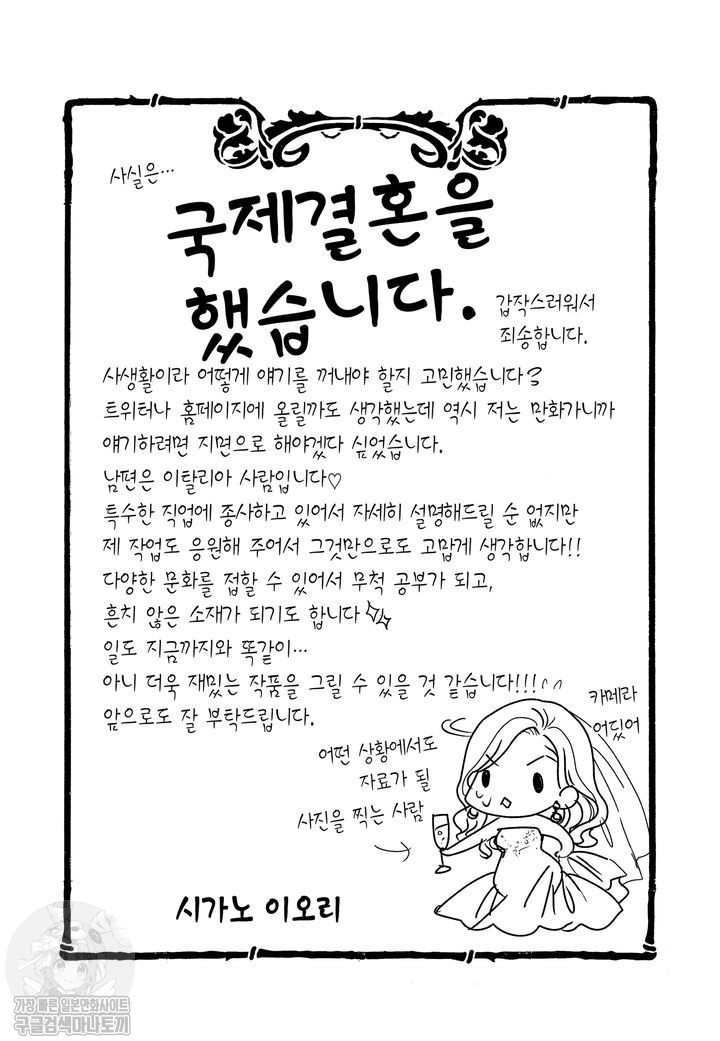 사실은…
국제결혼을
했습니다.
갑작스러워서
죄송합니다.
사생활이라 어떻게 얘기를 꺼내야 할지 고민했습니다?
트위터나 홈페이지에 올릴까도 생각했는데 역시 저는 만화가니까
얘기하려면 지면으로 해야겠다 싶었습니다.
남편은 이탈리아 사람입니다♡
특수한 직업에 종사하고 있어서 자세히 설명해드릴 순 없지만
제 작업도 응원해 주어서 그것만으로도 고맙게 생각합니다!!
다양한 문화를 접할 수 있어서 무척 공부가 되고,
흔치 않은 소재가 되기도 합니다
일도 지금까지와 똑같이…
아니 더욱 재밌는 작품을 그릴 수 있을 것 같습니다!!!
앞으로도 잘 부탁드립니다.
카메라
어딨어
어떤 상황에서도
자료가 될
사진을 찍는 사람
시가노 이오리
가장 빠른 일본만화사이트
구글검색마나토끼